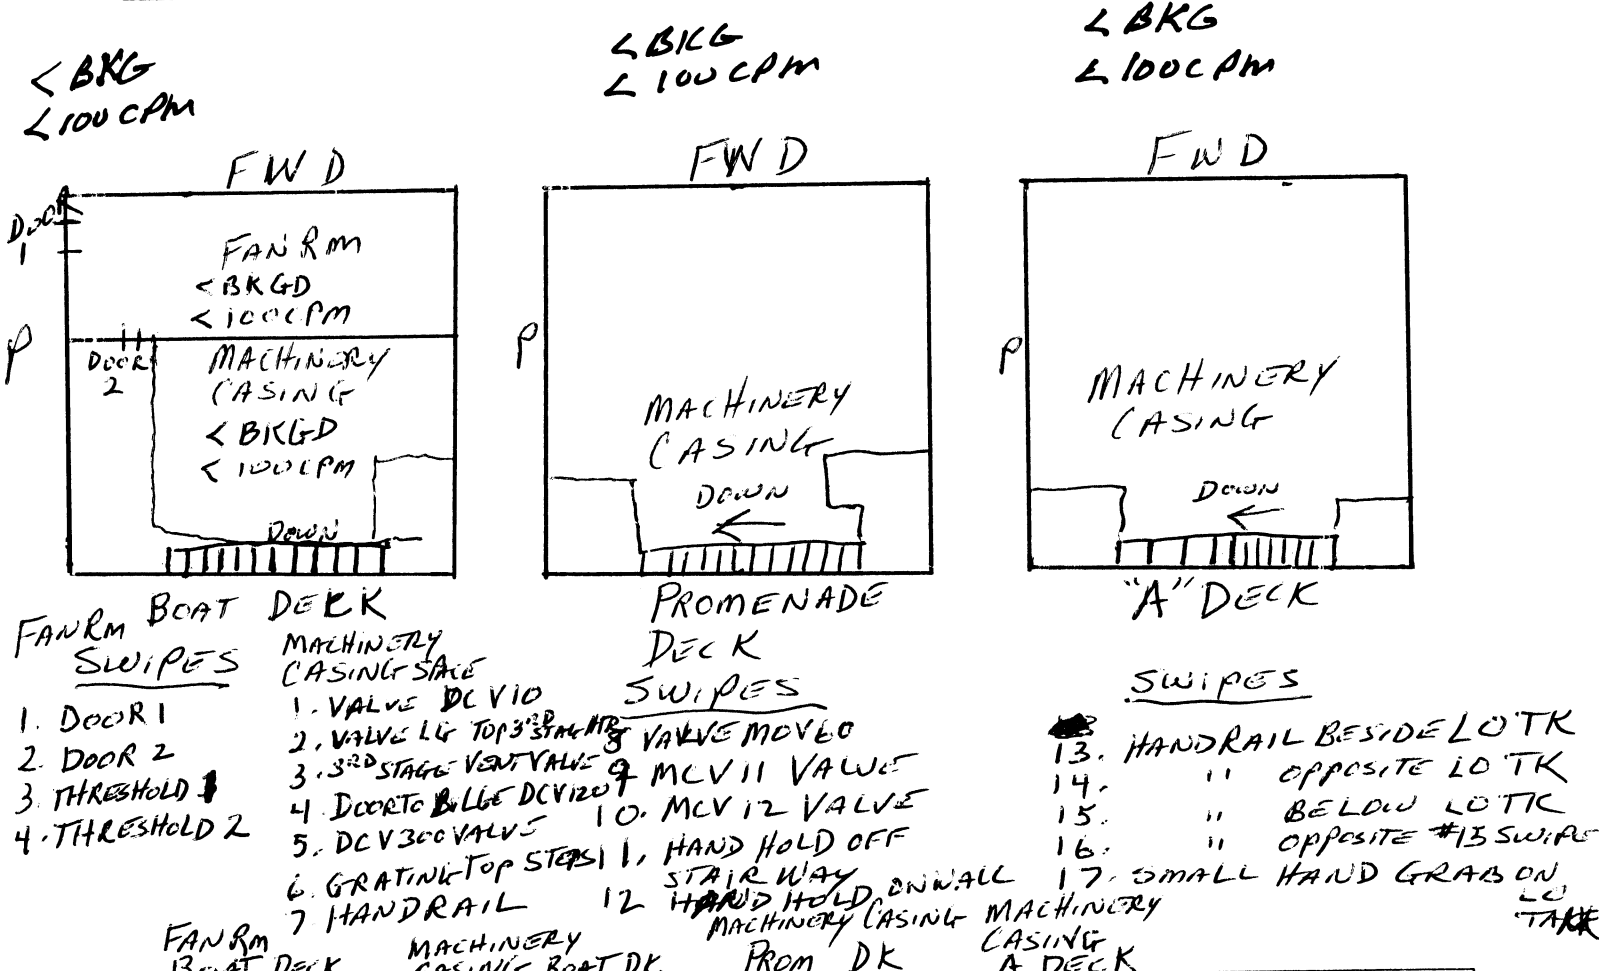 < BKG
< 100 CPM
< BKG
< 100 CPM
< BKG
< 100 CPM
FWD
DOOR
1
P
FAN RM
< BKGD
< 100 CPM
DOOR
2
MACHINERY
CASING
< BKGD
< 100 CPM
DOWN
BOAT DECK
FWD
P
MACHINERY
CASING
DOWN
PROMENADE
DECK
FWD
P
MACHINERY
CASING
DOWN
"A" DECK
FAN RM
SWIPES
1. DOOR 1
2. DOOR 2
3. THRESHOLD 1
4. THRESHOLD 2
MACHINERY
CASING SPACE
1. VALVE DCV10
2. VALVE LG TOP 3RD STAGE HTR
3. 3RD STAGE VENT VALVE
4. DOOR TO BILGE DCV120
5. DCV300 VALVE
6. GRATING TOP STEPS
7 HANDRAIL
SWIPES
8 VALVE MOV60
9 MCV11 VALVE
10. MCV12 VALVE
11. HAND HOLD OFF
STAIRWAY
12 HAND HOLD ON WALL
SWIPES
13. HANDRAIL BESIDE LO TK
14. " OPPOSITE LO TK
15. " BELOW LO TK
16. " OPPOSITE #15 SWIPE
17. SMALL HAND GRAB ON
LO
TANK
FAN RM
BOAT DECK
MACHINERY
CASING BOAT DK
MACHINERY CASING
PROM DK
MACHINERY
CASING
A DECK